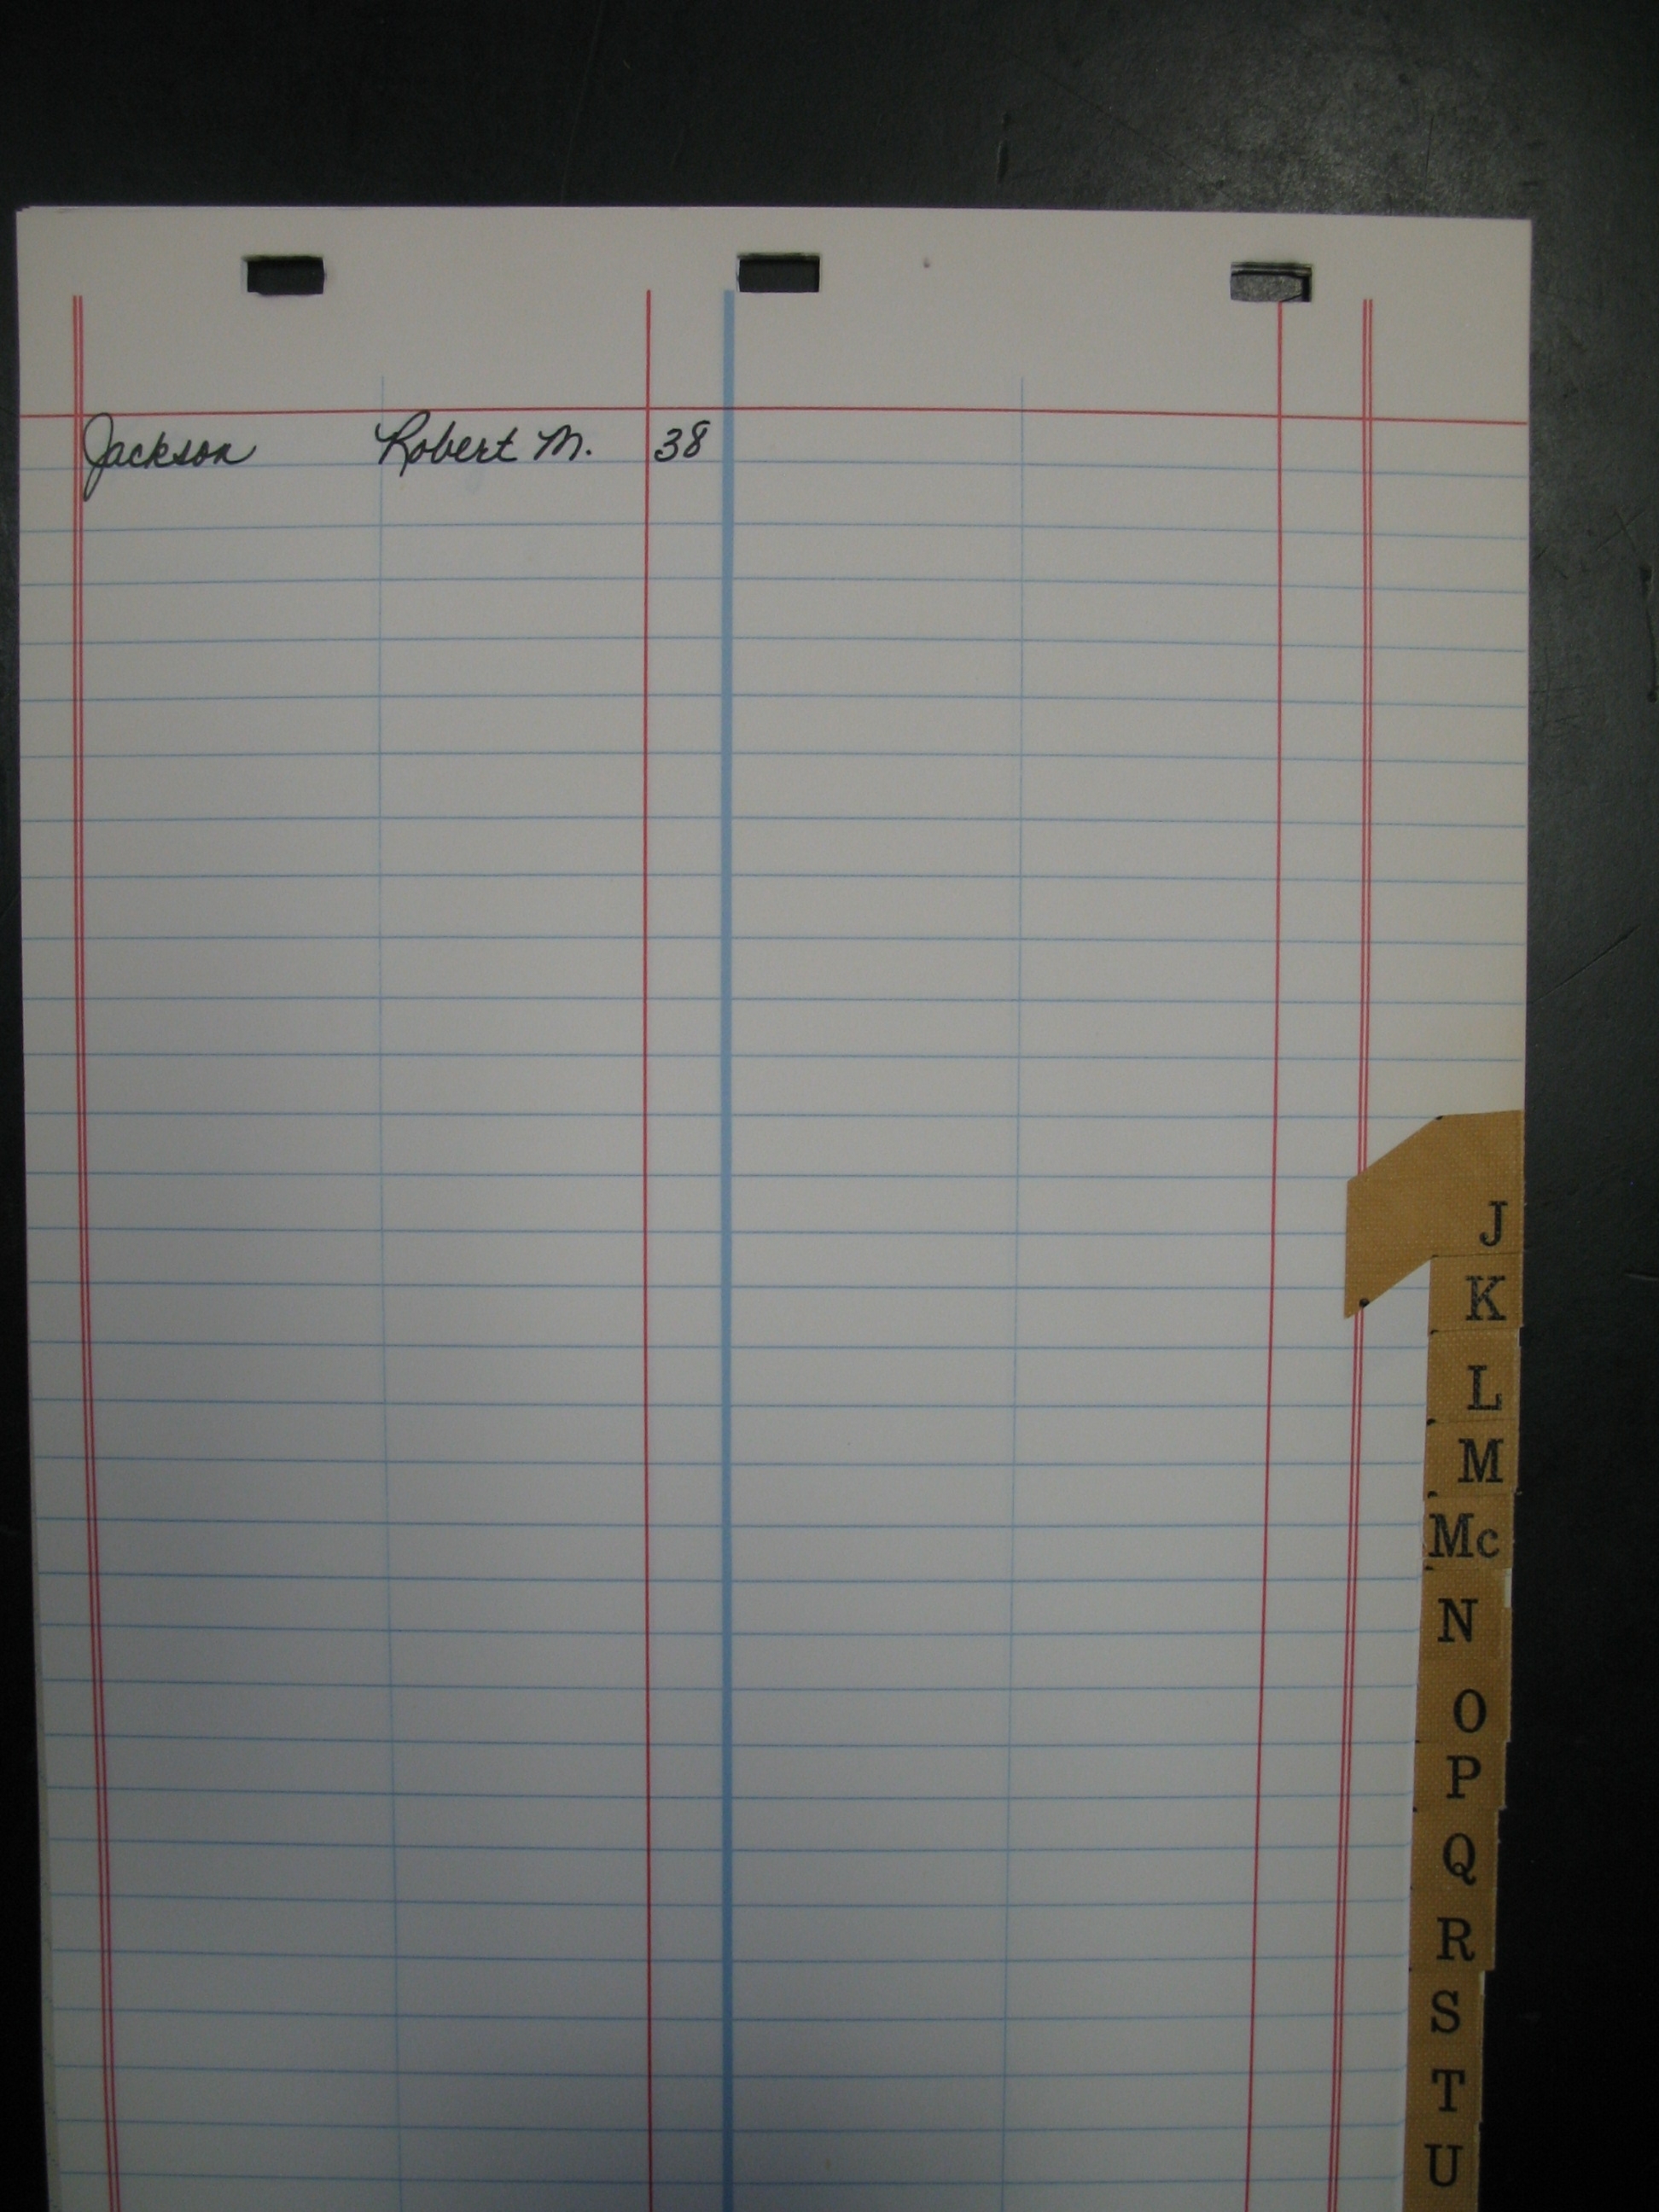 Jackson Robert M. 38
J
K
L
M
Mc
N
O
P
Q
R
S
T
U